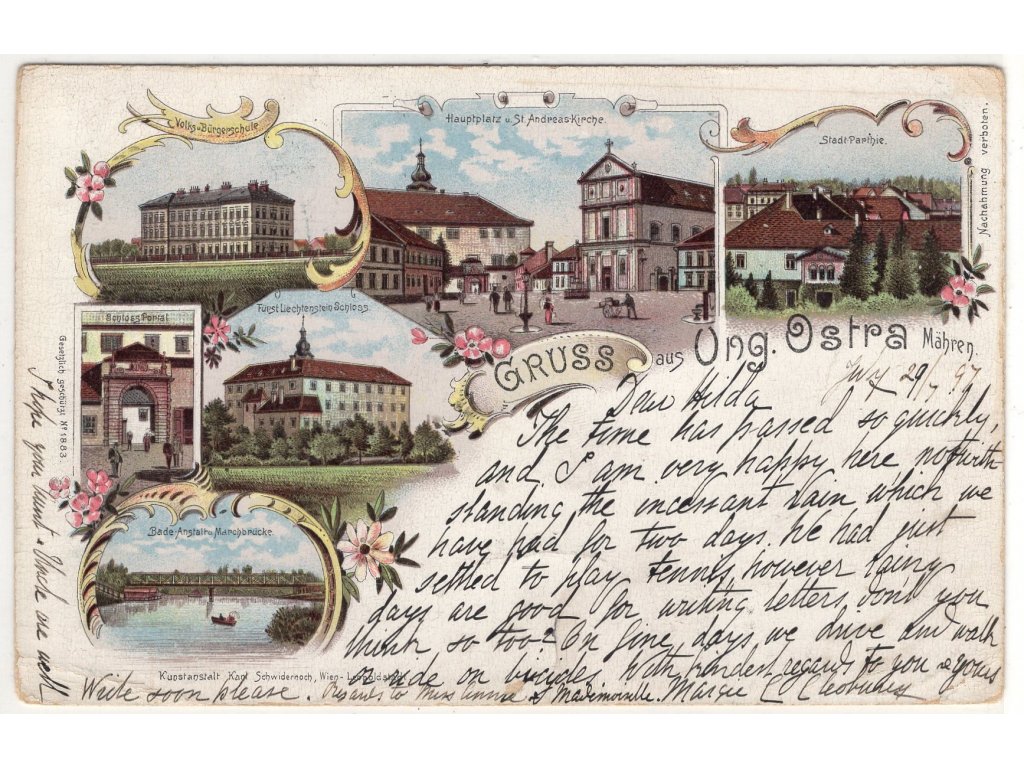 Volks u. Bürgerschule.
Hauptplatz u. St. Andreas-Kirche.
Stadt-Parthie.
Nachahmung verboten.
Schloss Portal
Fürst Liechtenstein Schloss.
Gesetzlich geschützt No 1883.
GRUSS aus Ung. Ostra Mähren.
Bade-Anstalt u. Marchbrücke.
Kunstanstalt Karl Schwidernoch, Wien-Leopoldstadt
July 29/97
Dear Hilda
The time has passed so quickly,
and I am very happy here notwith
standing the incessant rain which we
have had for two days. We had just
settled to play tennis, however rainy
days are good for writing letters, don't you
think so too? On fine days we drive and walk
or ride on bicycles. With kindest regards to you &
Write soon please. Regards to Miss Annie & Mademoiselle. Margie
I hope your aunt & Uncle are well